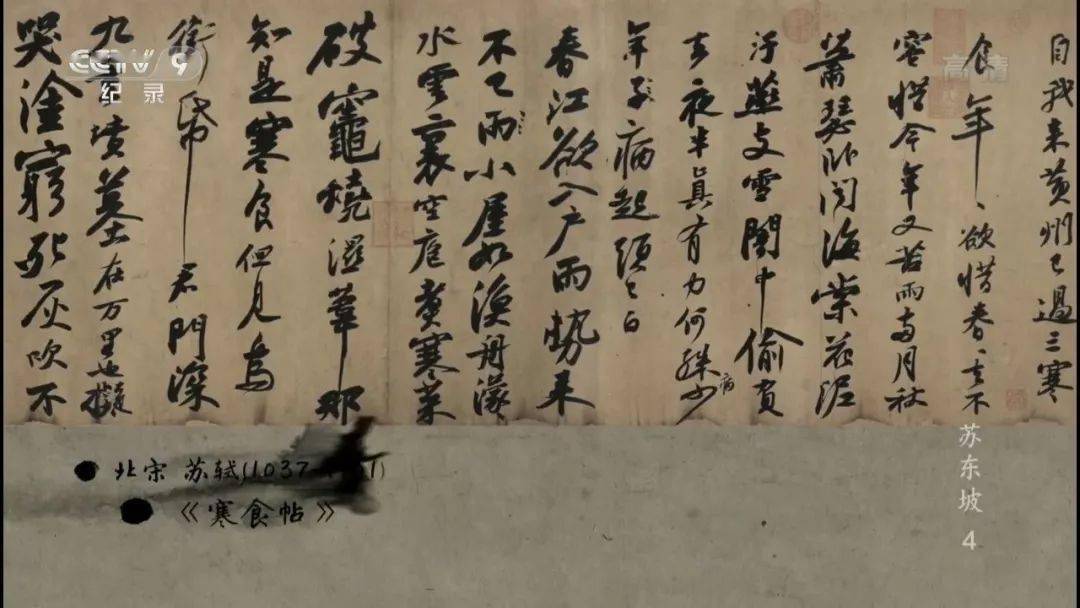 自我来黄州已過三寒
食年〻欲惜春〻去不
容惜今年又苦雨两月秋
蕭瑟卧闻海棠花泥
汙燕支雪闇中偷負
去夜半真有力何殊少
病
年子病起頭已白
春江欲入户雨势来
不已雨小屋如漁舟濛
水雲裏空庖煮寒菜
破竈燒濕葦那
知是寒食但見烏
銜帋君門深
九重墳墓在万里也擬
哭塗窮死灰吹不
CCTV 9
纪录
高清
苏东坡 4
北宋 苏轼(1037
《寒食帖》